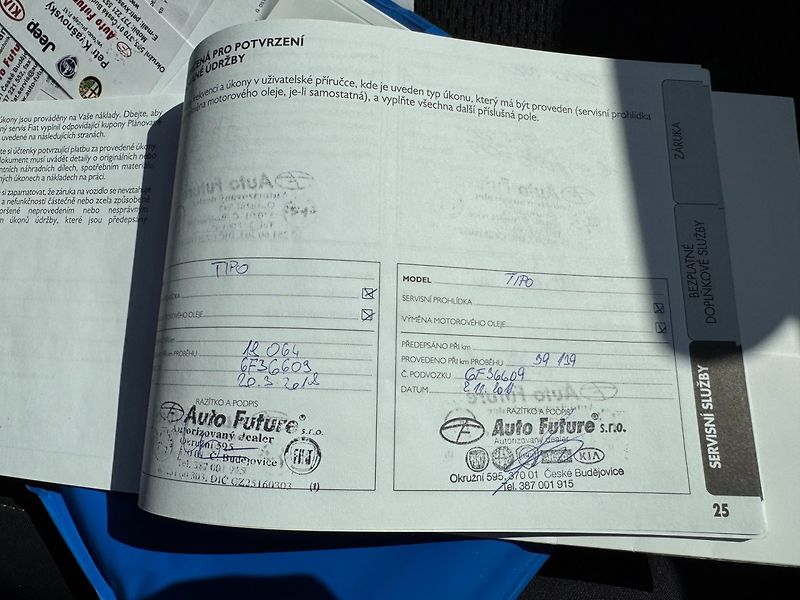 Petr Kvasňovský
Jeep
KIA
ŽENÁ PRO POTVRZENÍ
NÉ ÚDRŽBY
kvenci a úkony v uživatelské příručce, kde je uveden typ úkonu, který má být proveden (servisní prohlídka
ěna motorového oleje, je-li samostatná), a vyplňte všechna další příslušná pole.
úkony jsou prováděny na Vaše náklady. Dbejte, aby
ný servis Fiat vyplnil odpovídající kupony Plánované
uvedené na následujících stranách.
te si účtenky potvrzující platbu za provedené úkony.
dokument musí uvádět detaily o originálních nebo
ntních náhradních dílech, spotřebním materiálu,
ných úkonech a nákladech na práci.
e si zapamatovat, že záruka na vozidlo se nevztahuje
a nefunkčnosti částečně nebo zcela způsobené
oršené neprovedením nebo nesprávným
m úkonů údržby, které jsou předepsány
ZÁRUKA
BEZPLATNÉ
DOPLŇKOVÉ SLUŽBY
SERVISNÍ SLUŽBY
TIPO
OTOROVÉHO OLEJE
KM PRŮBĚHU 12 064
6F36603
20.3 2018
RAZÍTKO A PODPIS
Auto Future s.r.o.
Autorizovaný dealer
Okružní 595
Č. Budějovice
Tel. 387 001 915
DIČ CZ25160303 (1)
MODEL TIPO
SERVISNÍ PROHLÍDKA
VÝMĚNA MOTOROVÉHO OLEJE
PŘEDEPSÁNO PŘI km
PROVEDENO PŘI KM PRŮBĚHU 39 139
Č. PODVOZKU 6F36609
DATUM 2.11.2018
RAZÍTKO A PODPIS
Auto Future s.r.o.
Autorizovaný dealer
KIA
Okružní 595, 370 01 České Budějovice
Tel. 387 001 915
25